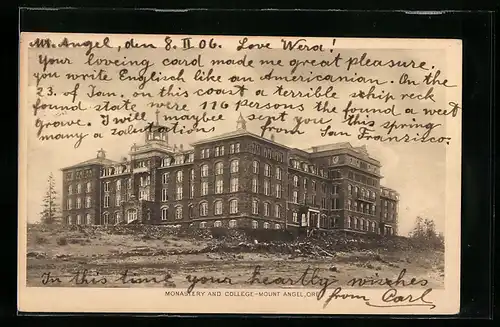 Mt. Angel, den 8. II 06. Love Wera!
Your loveing card made me great pleasure.
you write Englisch like an Americanian. On the
23. of Jan. on this coast a terrible schip reck
found state were 116 persons the found a wet
grave. I will maybee sent you this spring
many a salutations from San Franzisco.
In this time your heartly wisches
from Carl
MONASTERY AND COLLEGE-MOUNT ANGEL, ORE